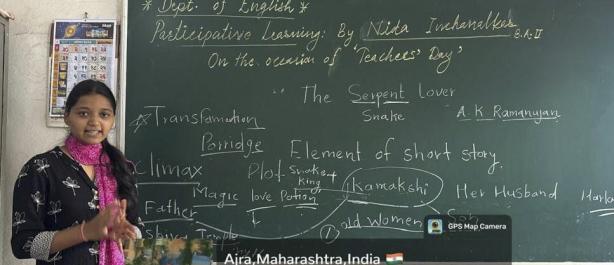 * Dept. of English *
Participative Learning: By Nida
B.A.II
On the occasion of 'Teachers' Day'
The Serpent Lover
Snake
A K Ramanujan
Transformation
Porridge
Element of short story.
Climax
Plot
Snake
king
Magic love Potion
Kamakshi
Her Husband
Father
① old Women
GPS Map Camera
Ajra,Maharashtra,India